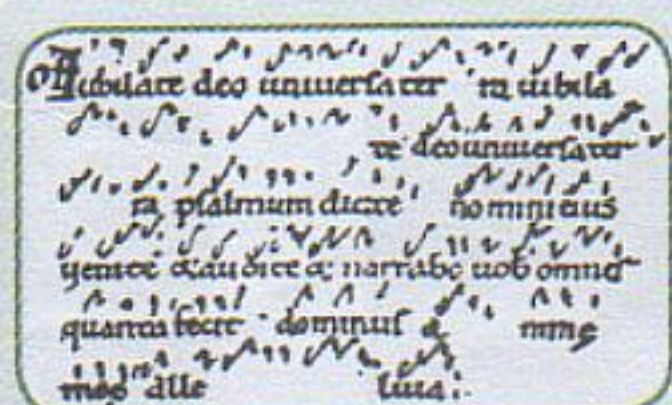 Iubilate deo uniuersa ter ra iubila
te deo uniuersa ter
ra psalmum dicite nomini eius
uenite & audite & narrabo uob omnes
quanta fecit dominus a nime
meę alle luia: